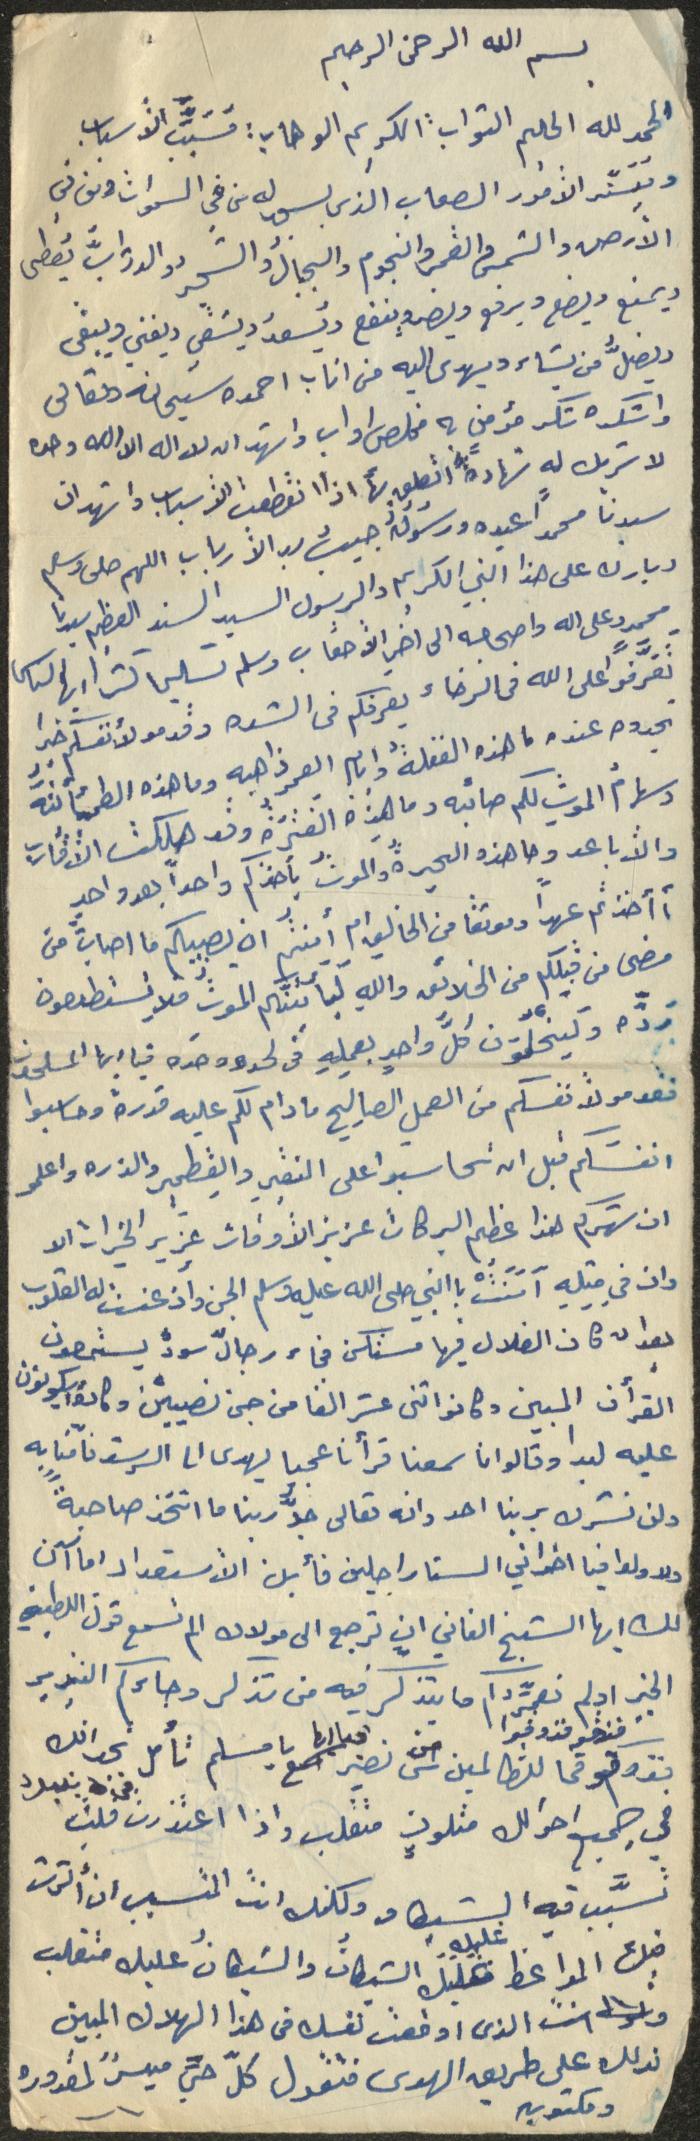 بسم الله الرحمن الرحيم
الحمد لله الحليم التواب الكريم الوهاب مُسَبِّب الأسباب
وميسّر الأمور الصعاب الذي يسجد له من في السموات ومن في
الأرض والشمس والقمر والنجوم والجبالُ والشجر والدوابّ يُعطي
ويمنع ويضع ويرفع ويضر وينفع ويُسعدُ ويشقي ويفني ويبقي
ويضلُّ من يشاء ويهدي اليه من اناب احمده سبحانه وتعالى
واشكره شكر مؤمن به مخلص اواب واشهد ان لا اله الا الله وحده
لا شريك له شهادةً انطق بها اذا انقطعت الأسباب واشهد ان
سيدنا محمداً عبده ورسولهُ حبيبُ رب الأرباب اللهم صلي وسلم
وبارك على هذا النبي الكريم والرسول السيد السند العظيم سيدنا
محمد وعلى اله واصحابه الى أخر الأحقاب وسلم تسليما كثيرا ايها الناس
تَعَرَّفوا على الله في الرخاء يعرفكم في الشده وقدمو لأنفسكم خيرا
تجدوه عنده ما هذه الغفلةُ وايام العمر ذاهبه وما هذه الطمئأنّنةُ
وسهامُ الموتِ لكم صائبه وما هذِهِ الغترَةُ وقد هلكت الأقارب
والأباعد وما هذه الحيرةُ والموتُ يأخذكم واحداً بعد واحدٍ
أأخذتم عهداً وموثقا من الخالق ام أمنتم ان يصيبكم ما اصابَ من
مضى من قبلكم من الخلائق واللهِ ليأتينَّكم الموتُ فلا تستطيعون
ردَّه وليَنخلَّون كلَّ واحدٍ بعملِهِ في لحده وحده فيا ايها المسلمون
تقدمو لأنفسكم من العمل الصالح ما دام لكم عليه قدرة وحاسبوا
انفسكم قبل ان تحاسبوا على النقير والقطمير والذره واعلمو
ان شهركم هذا عظيم البركات عزيز الأوقات غزير الخيرات الا
وان في مِثلِهِ آمَنَتْ باالنبي صلى الله عليه وسلم الجن وأذعنت له القلوب
بعد ان كان الضلال فيها مستكن فجاء رجالٌ سودٌ يستمعون
القرأن المبين وكانوا اثنى عشر الفا من جن نصيبين وكادوا يكونون
عليه لبدا وقالوا انا سمعنا قرأنا عجبا يهدى الى الرشد فأمنا به
ولن نشرك بربنا احد وانه تعالى جدُّ ربنا ما اتخذ صاحبةً
ولا ولدا فيا اخواني السنا راحلين فأين الأستعداد اما آن
لك ايها الشيخ الفاني ان ترجع الى مولاك الم تسمع قول اللطيف
الخبير اولم نعمّركم ما يتذكر فيه من تذكر وجاءكم النذير
فذوقوا
فذوقوا فما للظالمين من نصير يا مسلم تأمل تجد انك
في جميع احوالك متلونٍ متقلب واذا اعتذرت قلتَ
تسَبَّب فيه الشيطان ولكنك انت المتسبب ان أثرت
فيك المواعظ عليك الشيطانُ والشيطانُ عليك متقلب
انت الذي اوقعت نفسك في هذا الهلاك المبين
ندلك على طريق الهدى فتقول كلّ حيٍّ ميسرٌ لمقدوره
ومكتوبه